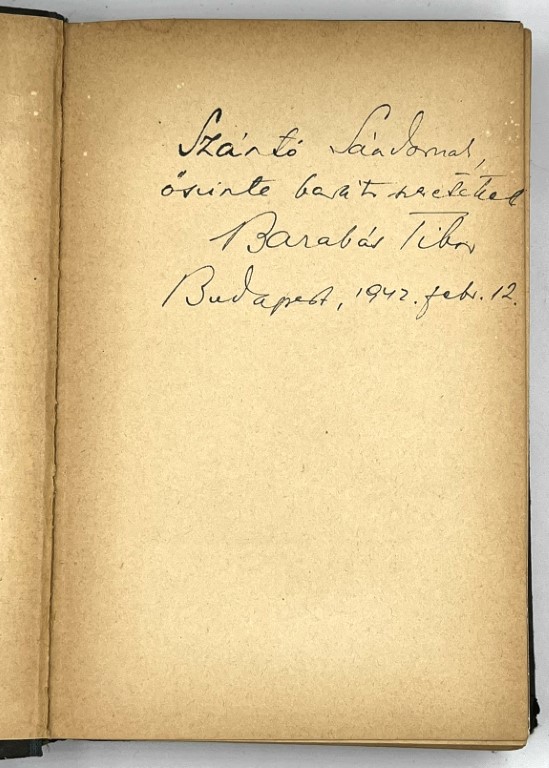 Szántó Sándornak,
őszinte baráti szeretettel
Barabás Tibor
Budapest, 1942. febr. 12.